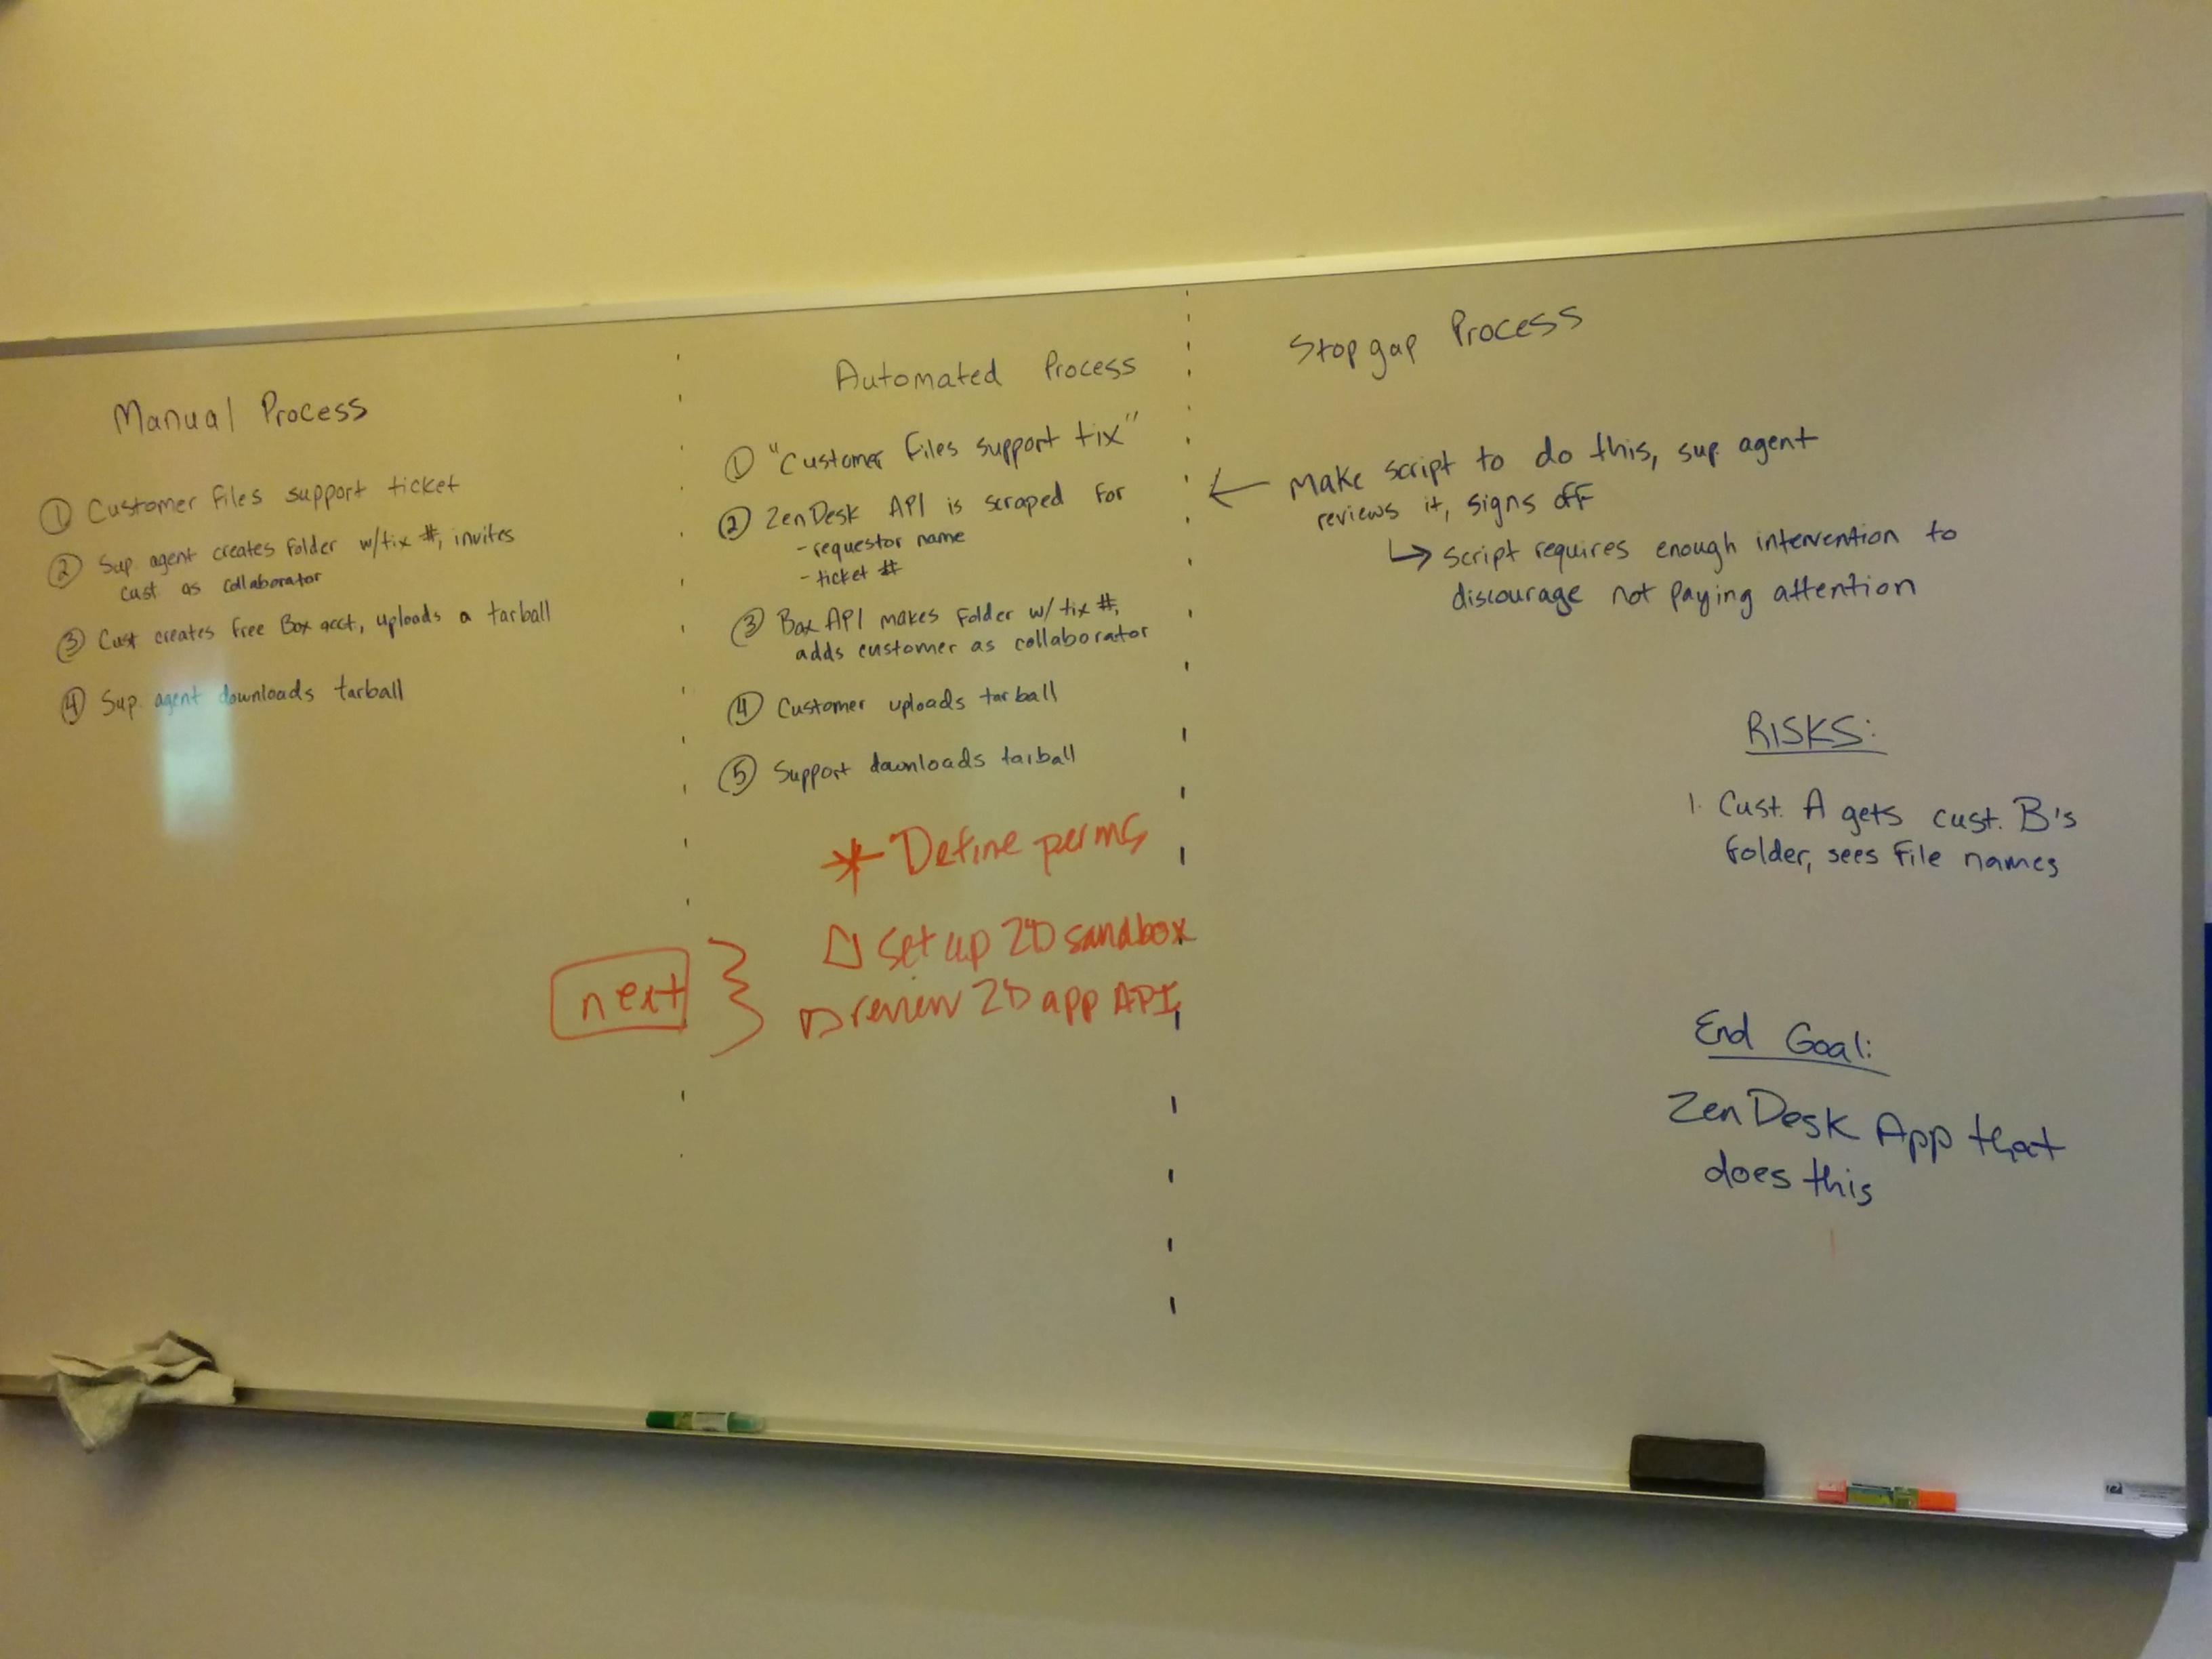 Manual Process
① Customer files support ticket
② Sup. agent creates folder w/tix #, invites
cust as collaborator
③ Cust creates free Box acct, uploads a tarball
④ Sup. agent downloads tarball
Automated Process
① "Customer files support tix"
② ZenDesk API is scraped for
- requestor name
- ticket #
③ Box API makes folder w/ tix #,
adds customer as collaborator
④ Customer uploads tarball
⑤ Support downloads tarball
* Define perms
next
□ set up ZD sandbox
□ review ZD app API
Stopgap Process
← Make script to do this, sup. agent
reviews it, signs off
↳ Script requires enough intervention to
discourage not paying attention
RISKS:
1. Cust. A gets cust. B's
folder, sees file names
End Goal:
ZenDesk App that
does this